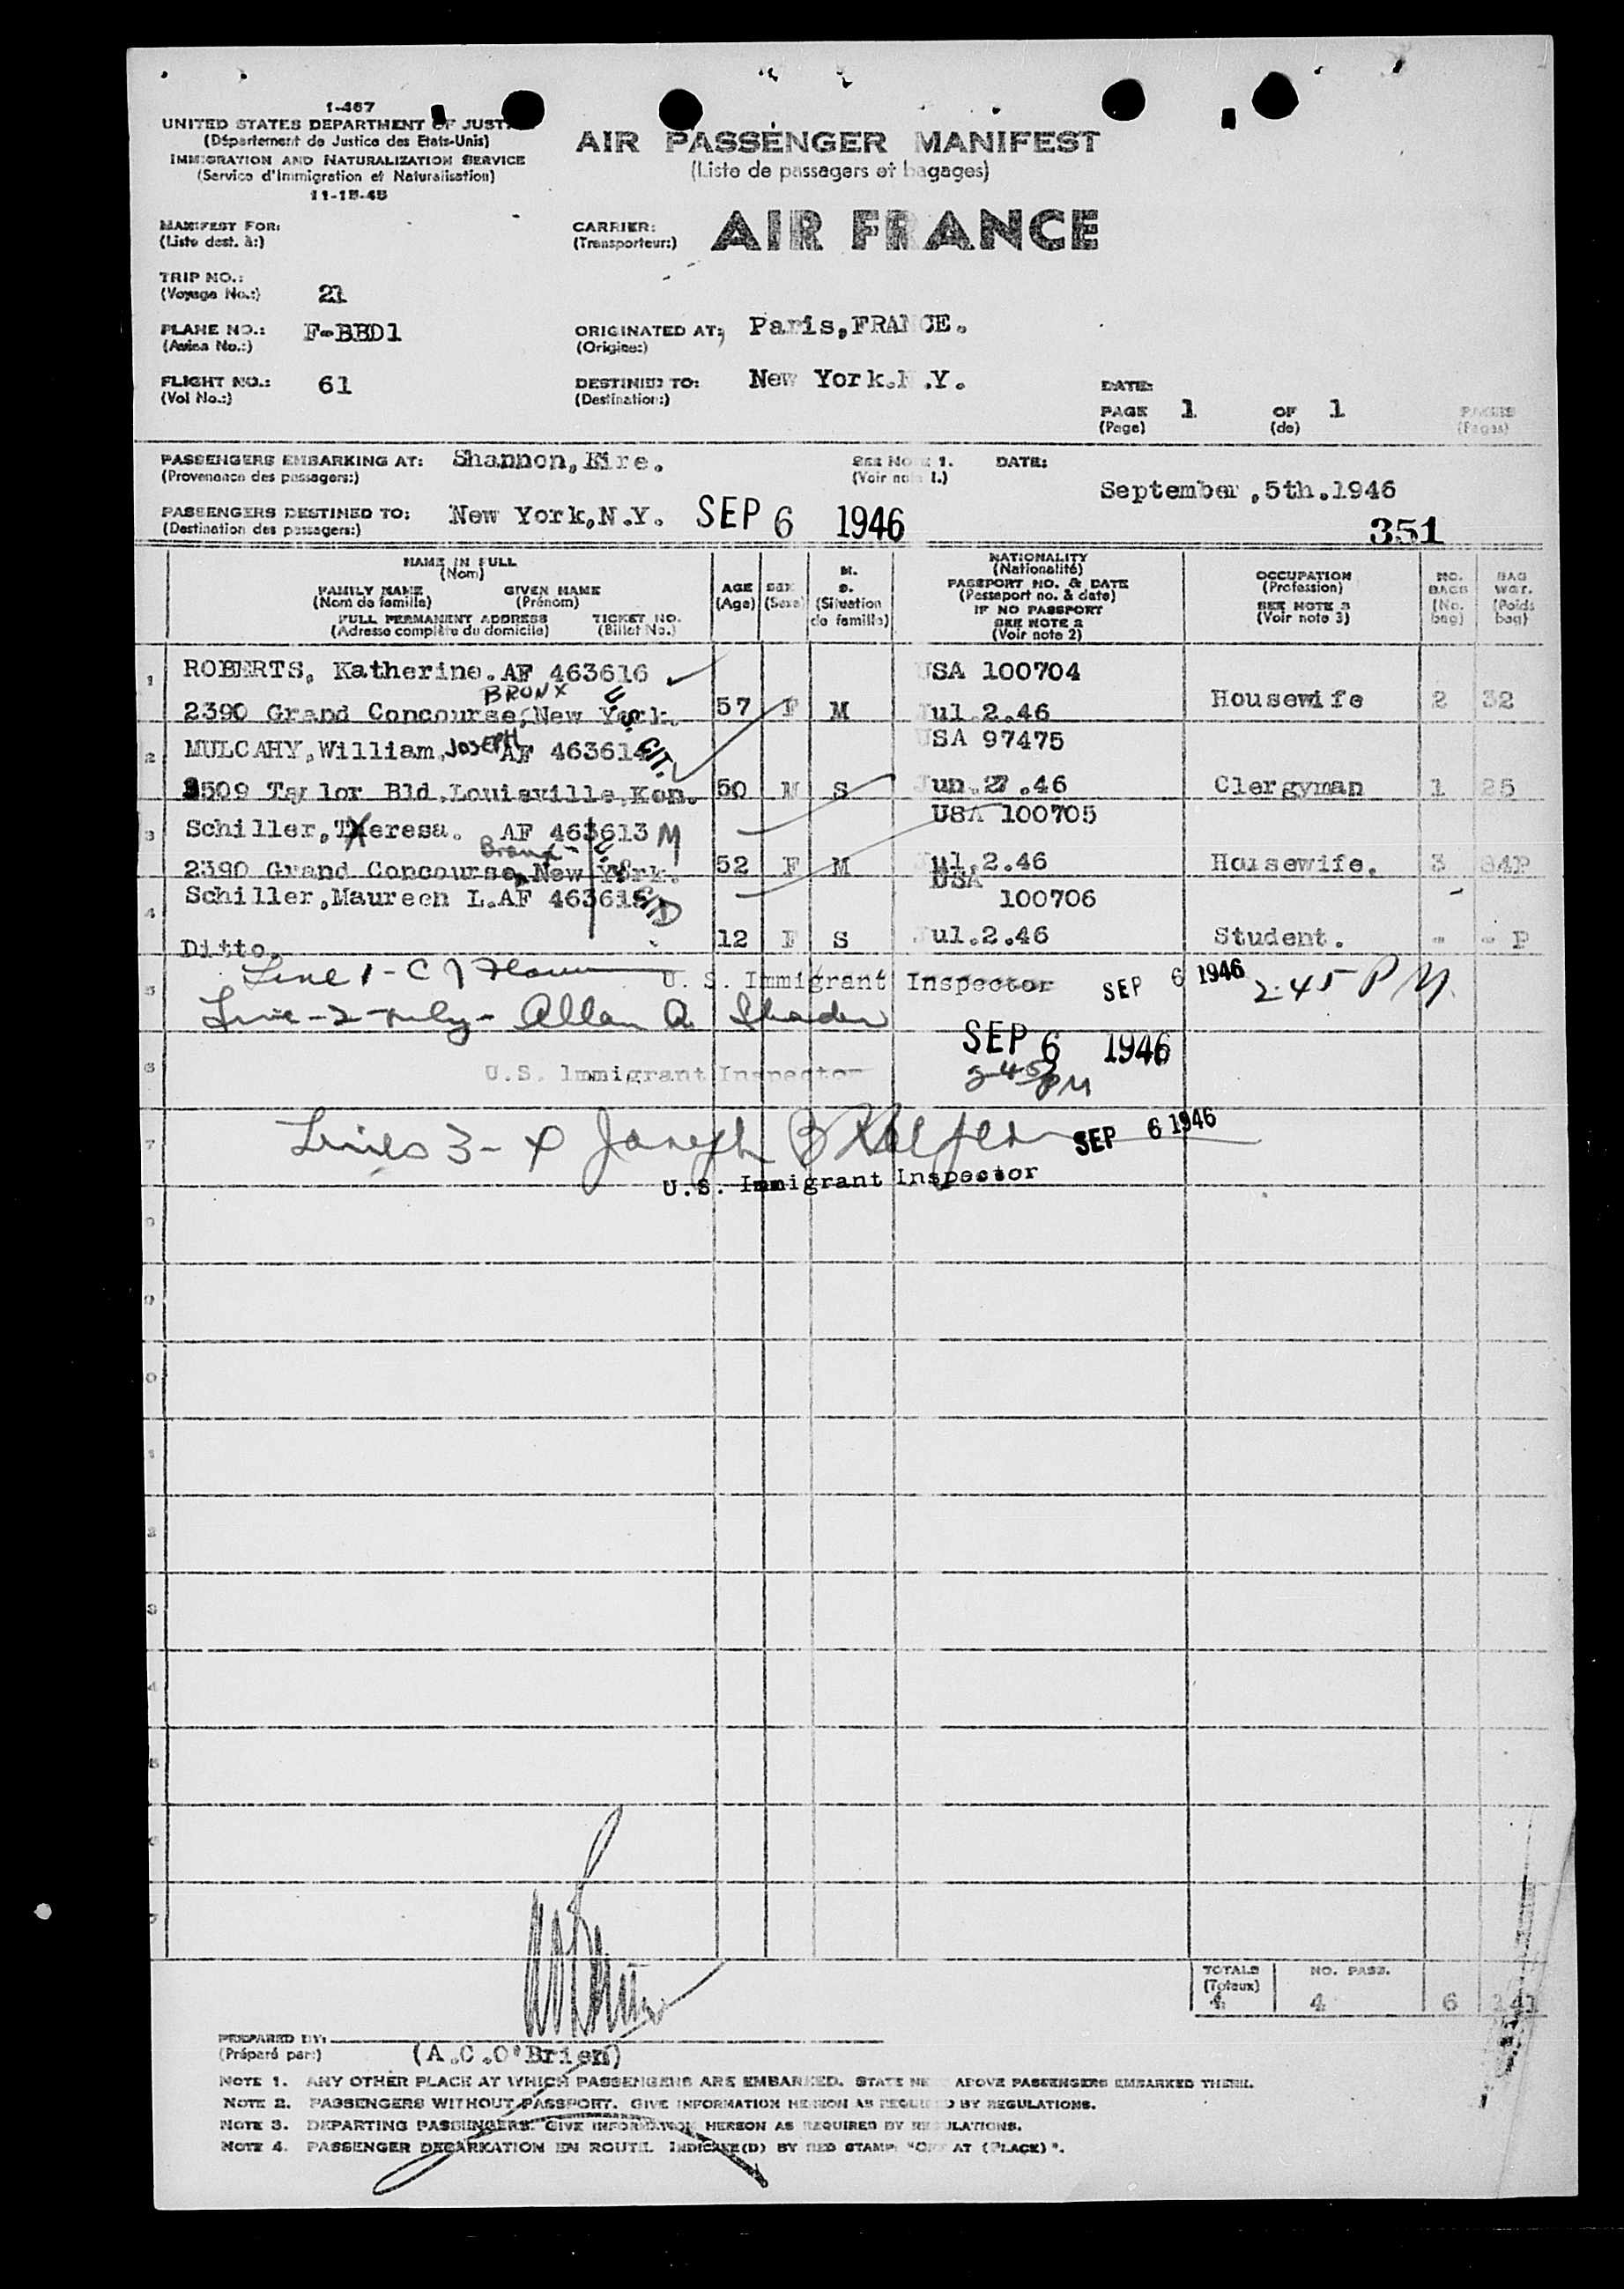 1-467
UNITED STATES DEPARTMENT OF JUST
(Département de Justice des Etats-Unis)
IMMIGRATION AND NATURALIZATION SERVICE
(Service d'Immigration et Naturalisation)
11-15-45
AIR PASSENGER MANIFEST
(Liste de passagers et bagages)
MANIFEST FOR:
(Liste dest. à:)
CARRIER:
(Transporteur:)
AIR FRANCE
TRIP NO.:
(Voyage No.:)
21
PLANE NO.:
(Avion No.:)
F-BBD1
ORIGINATED AT:
(Origine:)
Paris, FRANCE.
FLIGHT NO.:
(Vol No.:)
61
DESTINED TO:
(Destination:)
New York.N.Y.
DATE:
PAGE 1 OF 1 PAGES
(Page) (de) (Pages)
PASSENGERS EMBARKING AT: Shannon, Eire.
(Provenance des passagers:)
SEE NOTE 1.
(Voir note 1.)
DATE:
September,5th.1946
PASSENGERS DESTINED TO: New York,N.Y. SEP 6 1946
(Destination des passagers:)
351
NAME IN FULL
(Nom)
FAMILY NAME GIVEN NAME
(Nom de famille) (Prénom)
FULL PERMANENT ADDRESS TICKET NO.
(Adresse complète du domicile) (Billet No.)
AGE
(Age)
SEX
(Sexe)
M.
S.
(Situation
de famille)
NATIONALITY
(Nationalité)
PASSPORT NO. & DATE
(Passeport no. & date)
IF NO PASSPORT
SEE NOTE 2
(Voir note 2)
OCCUPATION
(Profession)
SEE NOTE 3
(Voir note 3)
NO.
BAGS
(No.
bag)
BAG
WGT.
(Poids
bag)
1 ROBERTS, Katherine. AF 463616 USA 100704
BRONX U.S. CIT.
2390 Grand Concourse, New York. 57 F M Jul.2.46 Housewife 2 32
2 MULCAHY, William, JOSEPH AF 463614 USA 97475
3509 Taylor Bld,Louisville,Ken. 50 M S Jun.27.46 Clergyman 1 25
3 Schiller, Theresa. AF 463613 M USA 100705
Bronx U.S. CIT
2390 Grand Concourse, New York. 52 F M Jul.2.46 Housewife. 3 84P
4 Schiller,Maureen L.AF USA 100706
Ditto. 12 F S Jul.2.46 Student. - - P
Line 1 - C J
U. S. Immigrant Inspector SEP 6 1946 2.45 P M.
5 Line - 2 only - Allan A.
SEP 6 1946
2-45 PM
6 U.S. Immigrant Inspector
7 Lines 3-4 Joseph B SEP 6 1946
U.S. Immigrant Inspector
8
9
0
1
2
3
4
5
6
7
TOTALS
(Totaux)
4
NO. PASS.
4 6 141
PREPARED BY:
(Préparé par:)
(A.C.O'Brien)
NOTE 1. ANY OTHER PLACE AT WHICH PASSENGERS ARE EMBARKED. STATE NEXT ABOVE PASSENGERS EMBARKED THERE.
NOTE 2. PASSENGERS WITHOUT PASSPORT. GIVE INFORMATION HEREON AS REQUIRED BY REGULATIONS.
NOTE 3. DEPARTING PASSENGERS. GIVE INFORMATION HEREON AS REQUIRED BY REGULATIONS.
NOTE 4. PASSENGER DEBARKATION EN ROUTE. INDICATE(D) BY RED STAMP "OFF AT (PLACE)".